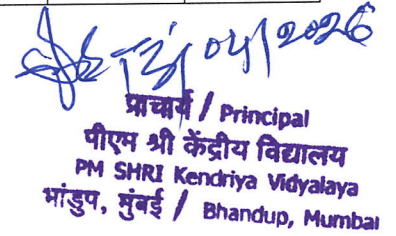 04/2026
प्राचार्य / Principal
पीएम श्री केंद्रीय विद्यालय
PM SHRI Kendriya Vidyalaya
भांडुप, मुंबई / Bhandup, Mumbai